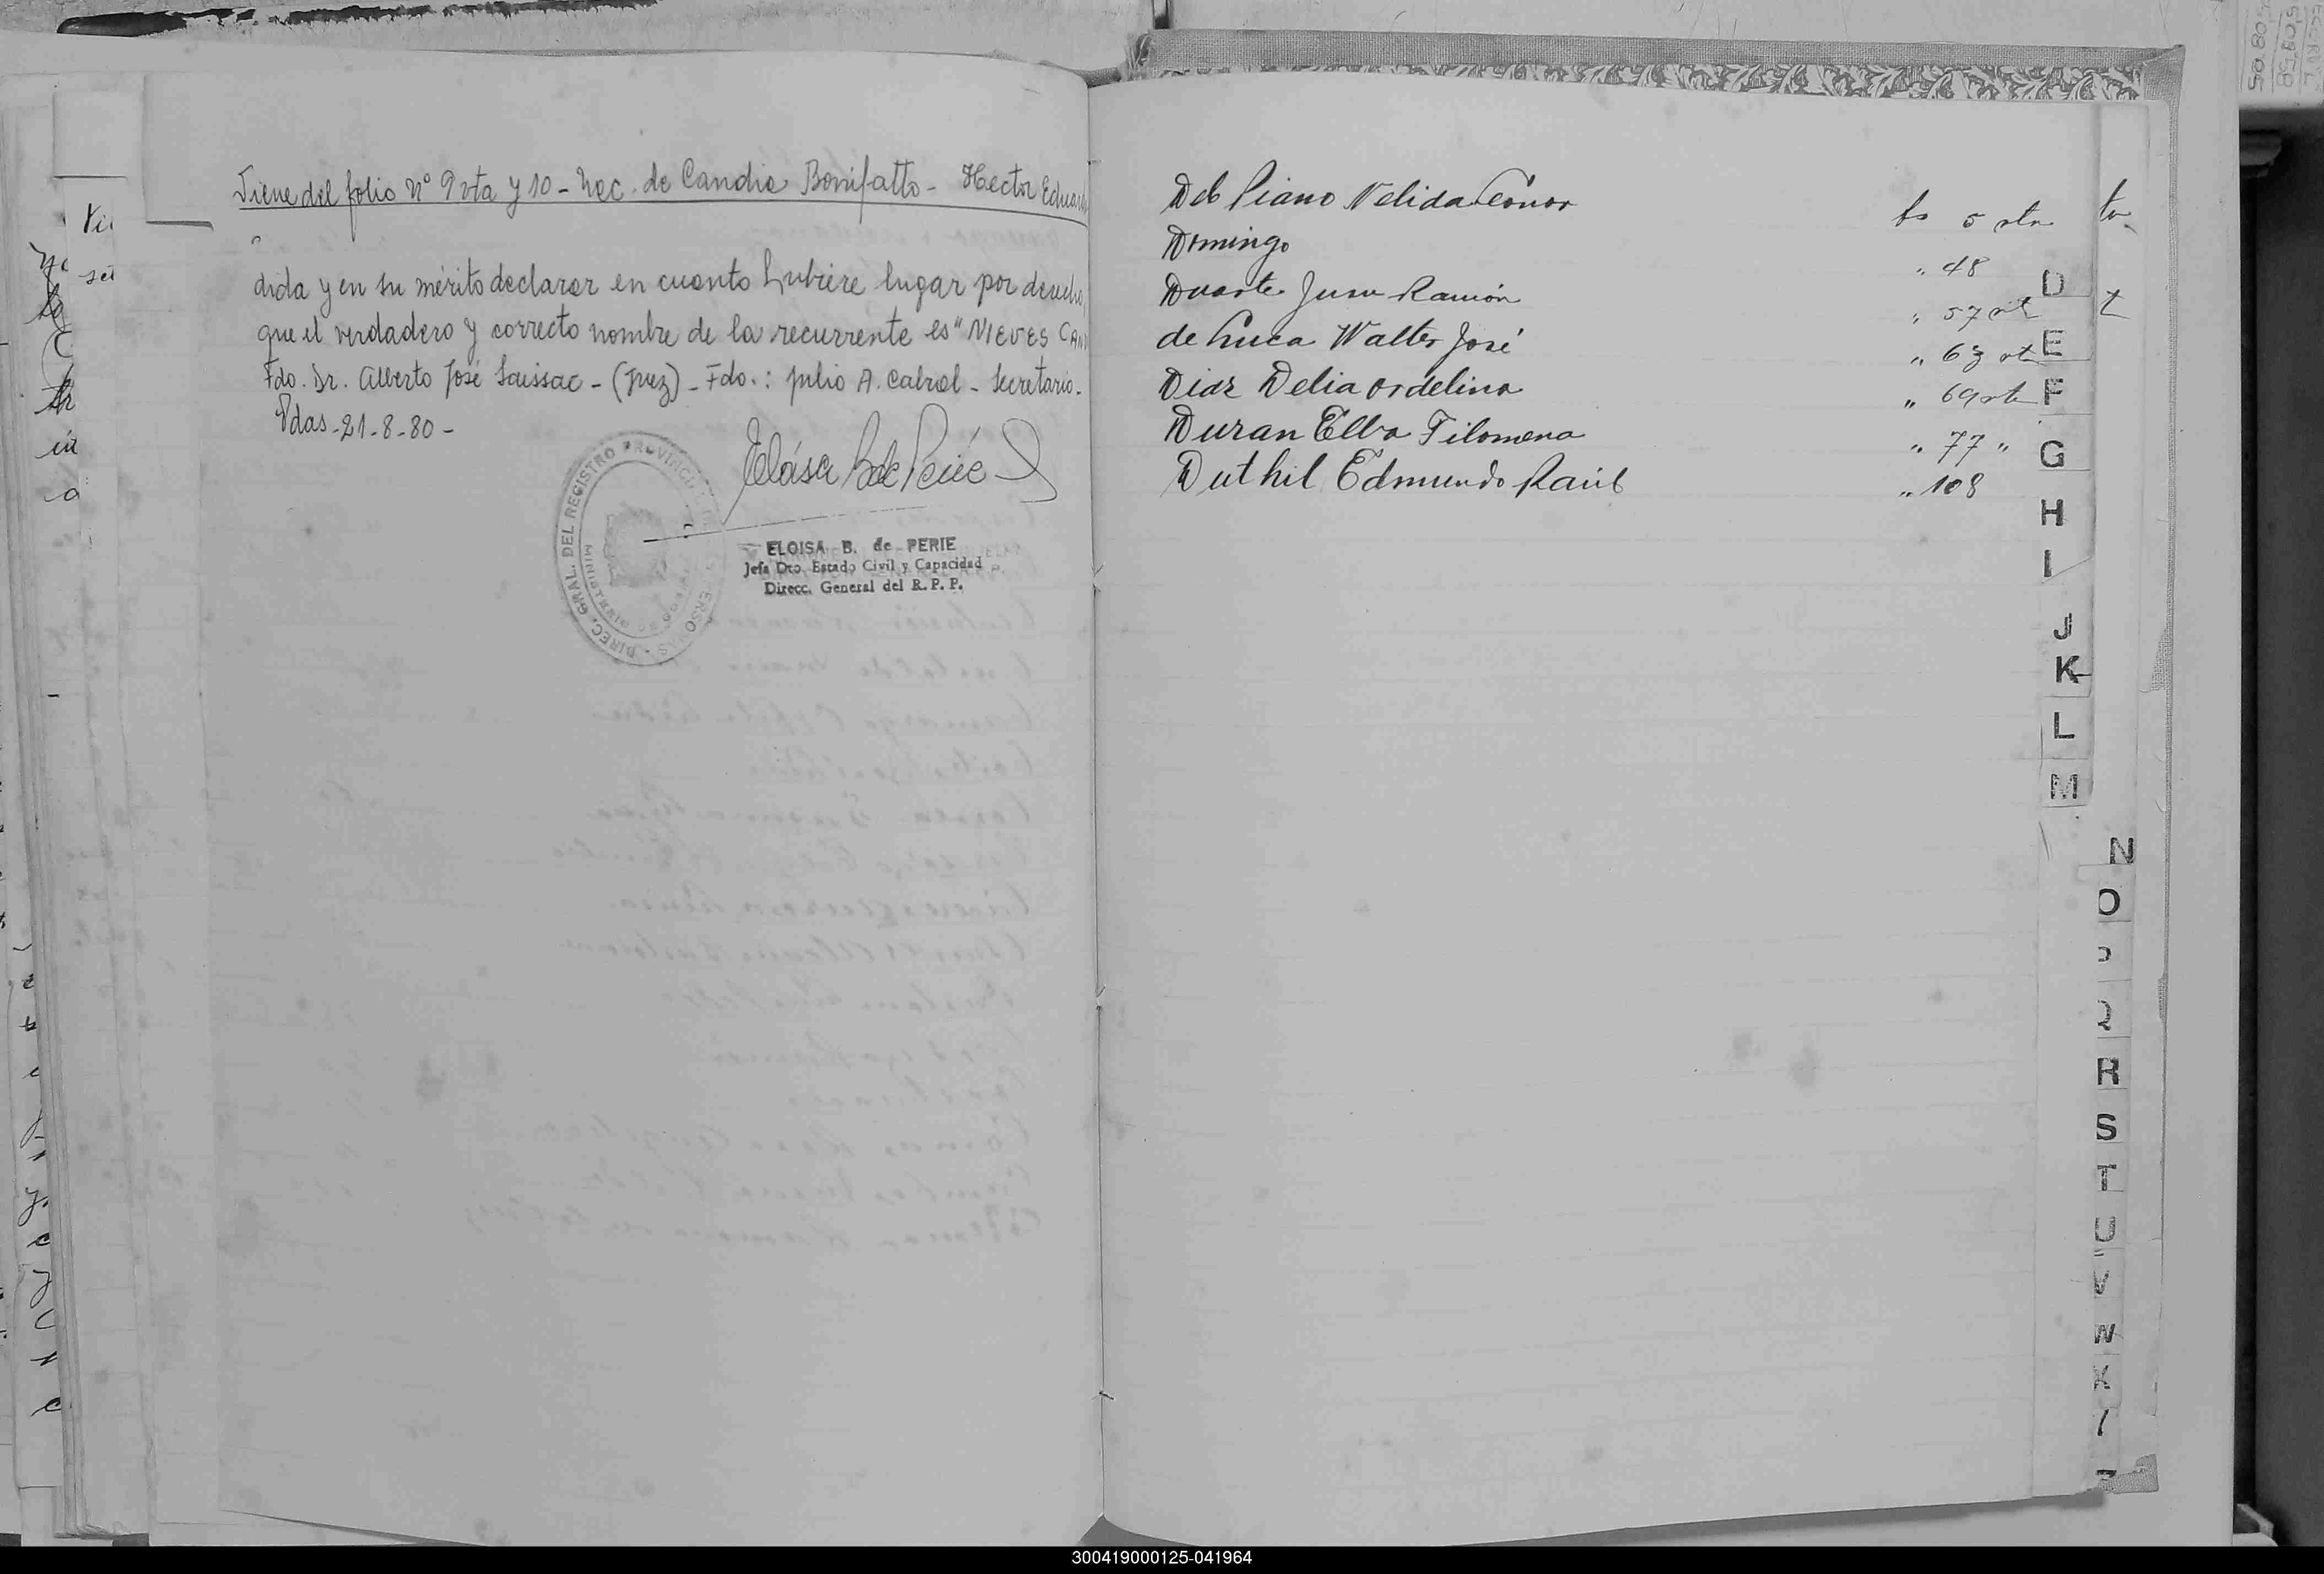 Viene del folio Nº 9 vta y 10 - Nac. de Candia Bonifatto - Hector
dida y en su mérito declarar en cuanto hubiere lugar por derecho,
que el verdadero y correcto nombre de la recurrente es "NIEVES
Fdo. Dr. Alberto José Saissac - (Juez) - Fdo.: Julio A. Cabral - Secretario -
Pdas - 21 - 8 - 80 -
DIREC. GRAL. DEL REGISTRO
ELOISA B. de PERIE
Jefa Dto. Estado Civil y Capacidad
Direcc. General del R. P. P.
Del Piano Nelida Leonor fs 5 vta
Domingo " 48
Duarte Juan Ramón " 57 vta
de Luca Walter José " 63 vta
Diaz Delia Ordelina " 69 vta
Duran Elba Filomena " 77 "
Duthil Edmundo Raúl " 108
D
E
F
G
H
I
J
K
L
M
N
O
R
S
T
U
V
W
X
300419000125-041964